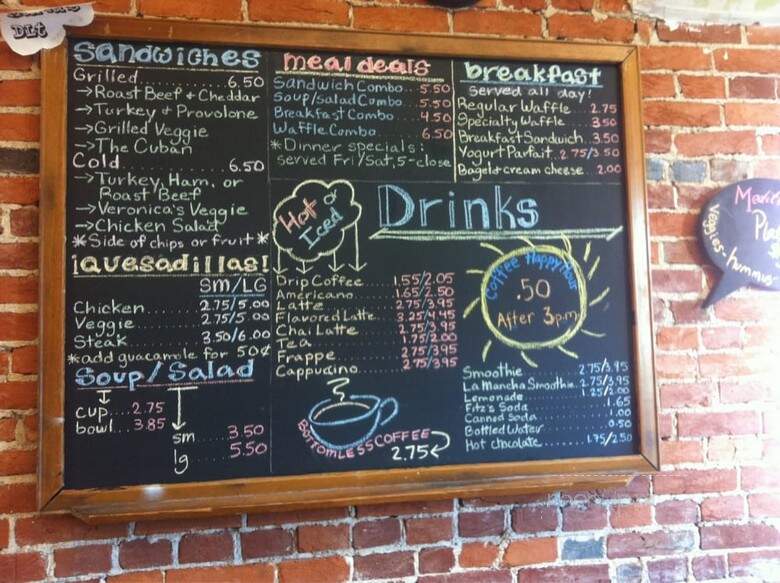 DLt
Sandwiches
Grilled.......... 6.50
→Roast Beef + Cheddar
→Turkey + Provolone
→Grilled Veggie
→The Cuban
Cold............ 6.50
→Turkey, Ham, or
Roast Beef
→Veronica's Veggie
→Chicken Salad
*Side of chips or fruit*
¡Quesadillas!
SM/LG
Chicken..... 2.75/5.00
Veggie....... 2.75/5.00
Steak........ 3.50/6.00
*add guacamole for 50¢
Soup/Salad
cup....2.75
bowl...3.85
sm....... 3.50
lg....... 5.50
meal deals
Sandwich Combo... 5.50
Soup/Salad Combo.. 5.50
Breakfast Combo 4.50
Waffle Combo...... 6.50
*Dinner specials:
served Fri/Sat, 5-close
breakfast
served all day!
Regular Waffle.... 2.75
Specialty Waffle... 3.50
Breakfast Sandwich..3.50
Yogurt Parfait..2.75/3.50
Bagel + cream cheese.. 2.00
Hot or
Iced
Drinks
Drip Coffee....... 1.55/2.05
Americano........ 1.65/2.50
Latte............ 2.75/3.95
Flavored Latte... 3.25/4.45
Chai Latte....... 2.75/3.95
Tea.............. 1.75/2.00
Frappe........... 2.75/3.95
Cappuccino....... 2.75/3.95
Coffee Happy Hour
.50
After 3pm
BOTTOMLESS COFFEE
2.75
Smoothie............ 2.75/3.95
La Mancha Smoothie.. 2.75/3.95
Lemonade............ 1.25/2.00
Fitz's Soda............ 1.65
Canned Soda........... 1.00
Bottled Water.......... 0.50
Hot Chocolate....... 1.75/2.50
Veggies-hummus